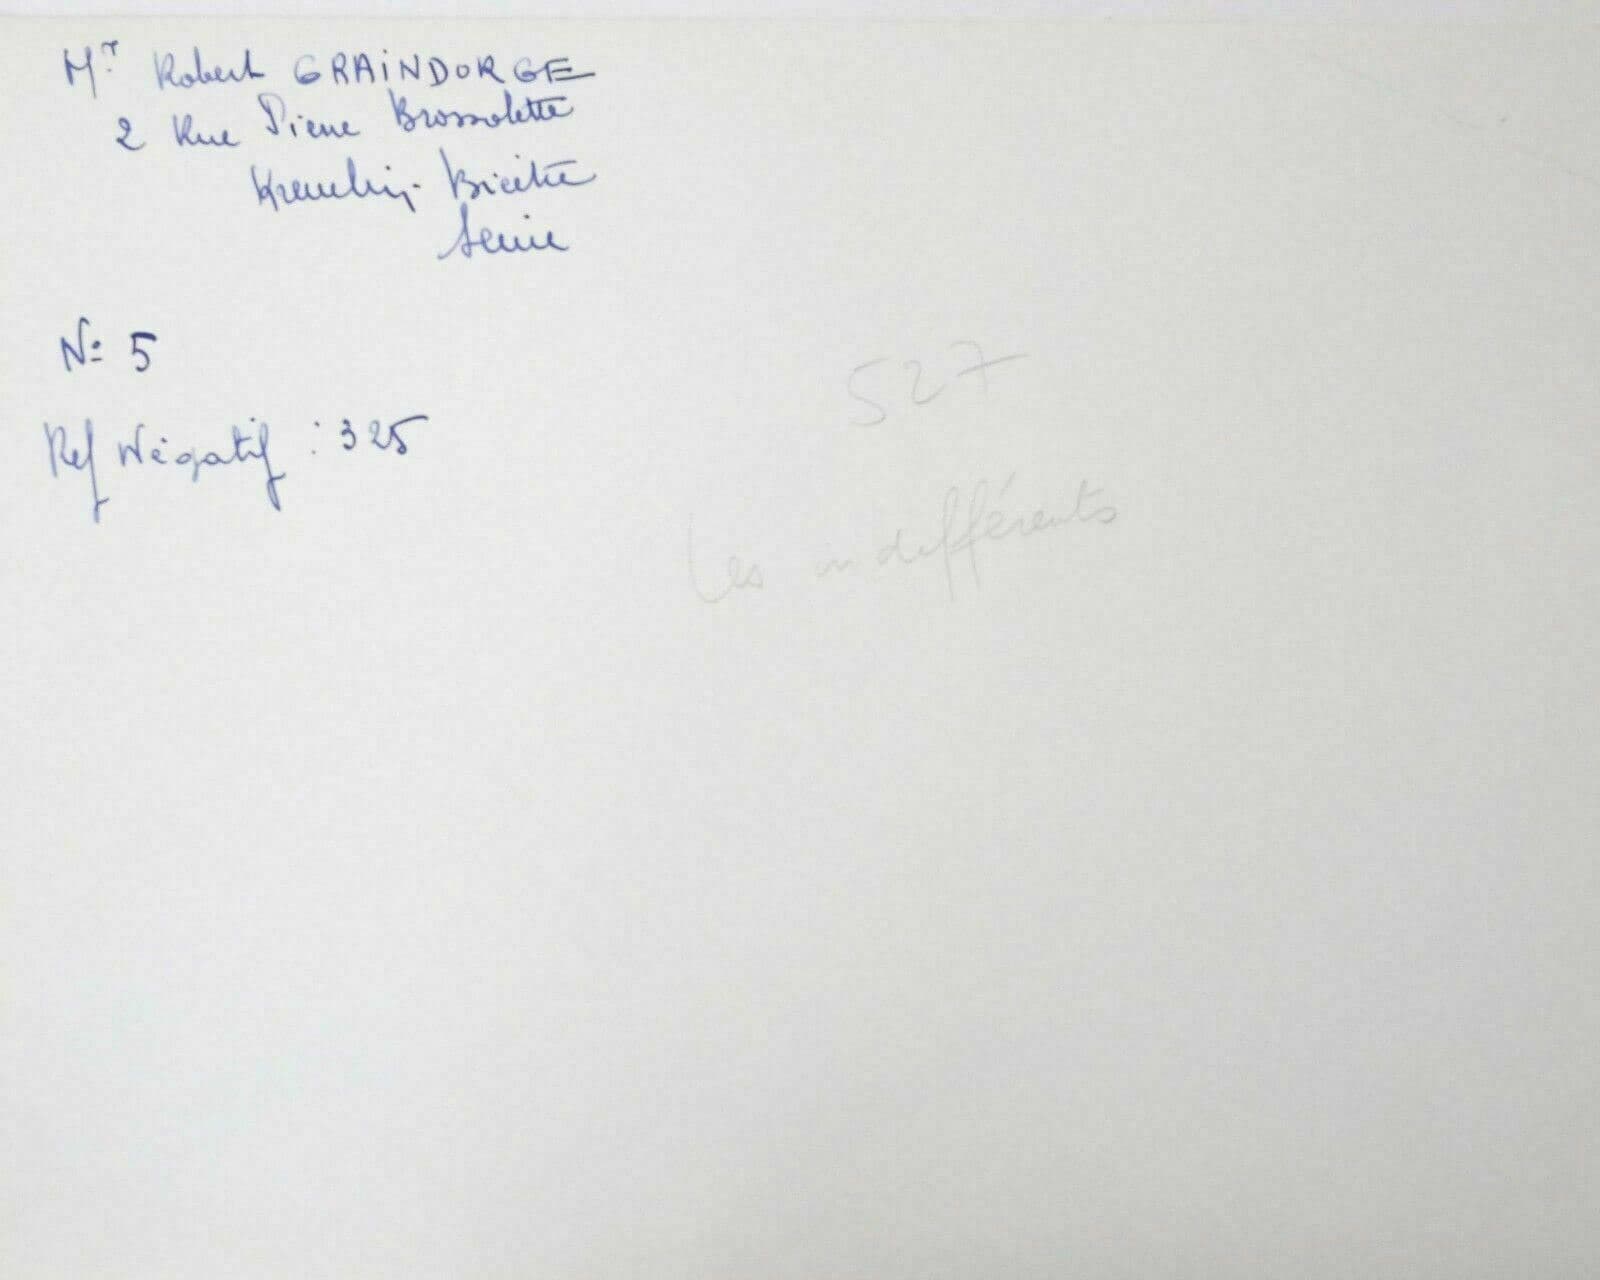 Mr. Robert GRAINDORGE
2 Rue Pierre Brossolette
Kremlin-Bicêtre
Seine
No 5
Ref Négatif : 325
527
Les indifférents